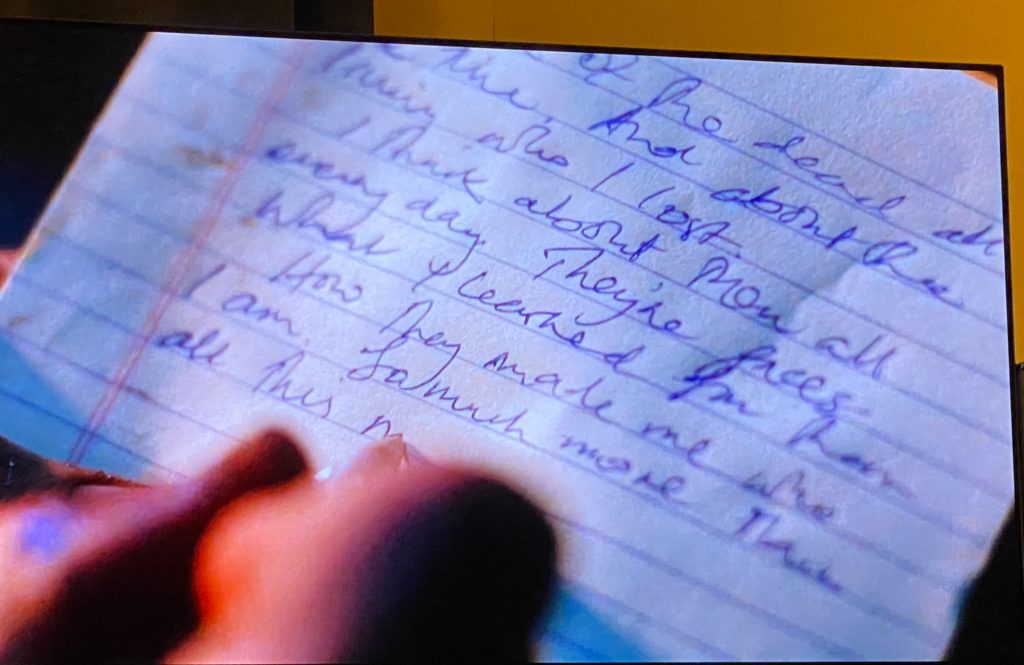 of the dead all
the And about the
who I lost.
I think about them all
every day. They're faces.
What I learned from them
How they made me who
I am. So much more than
all this